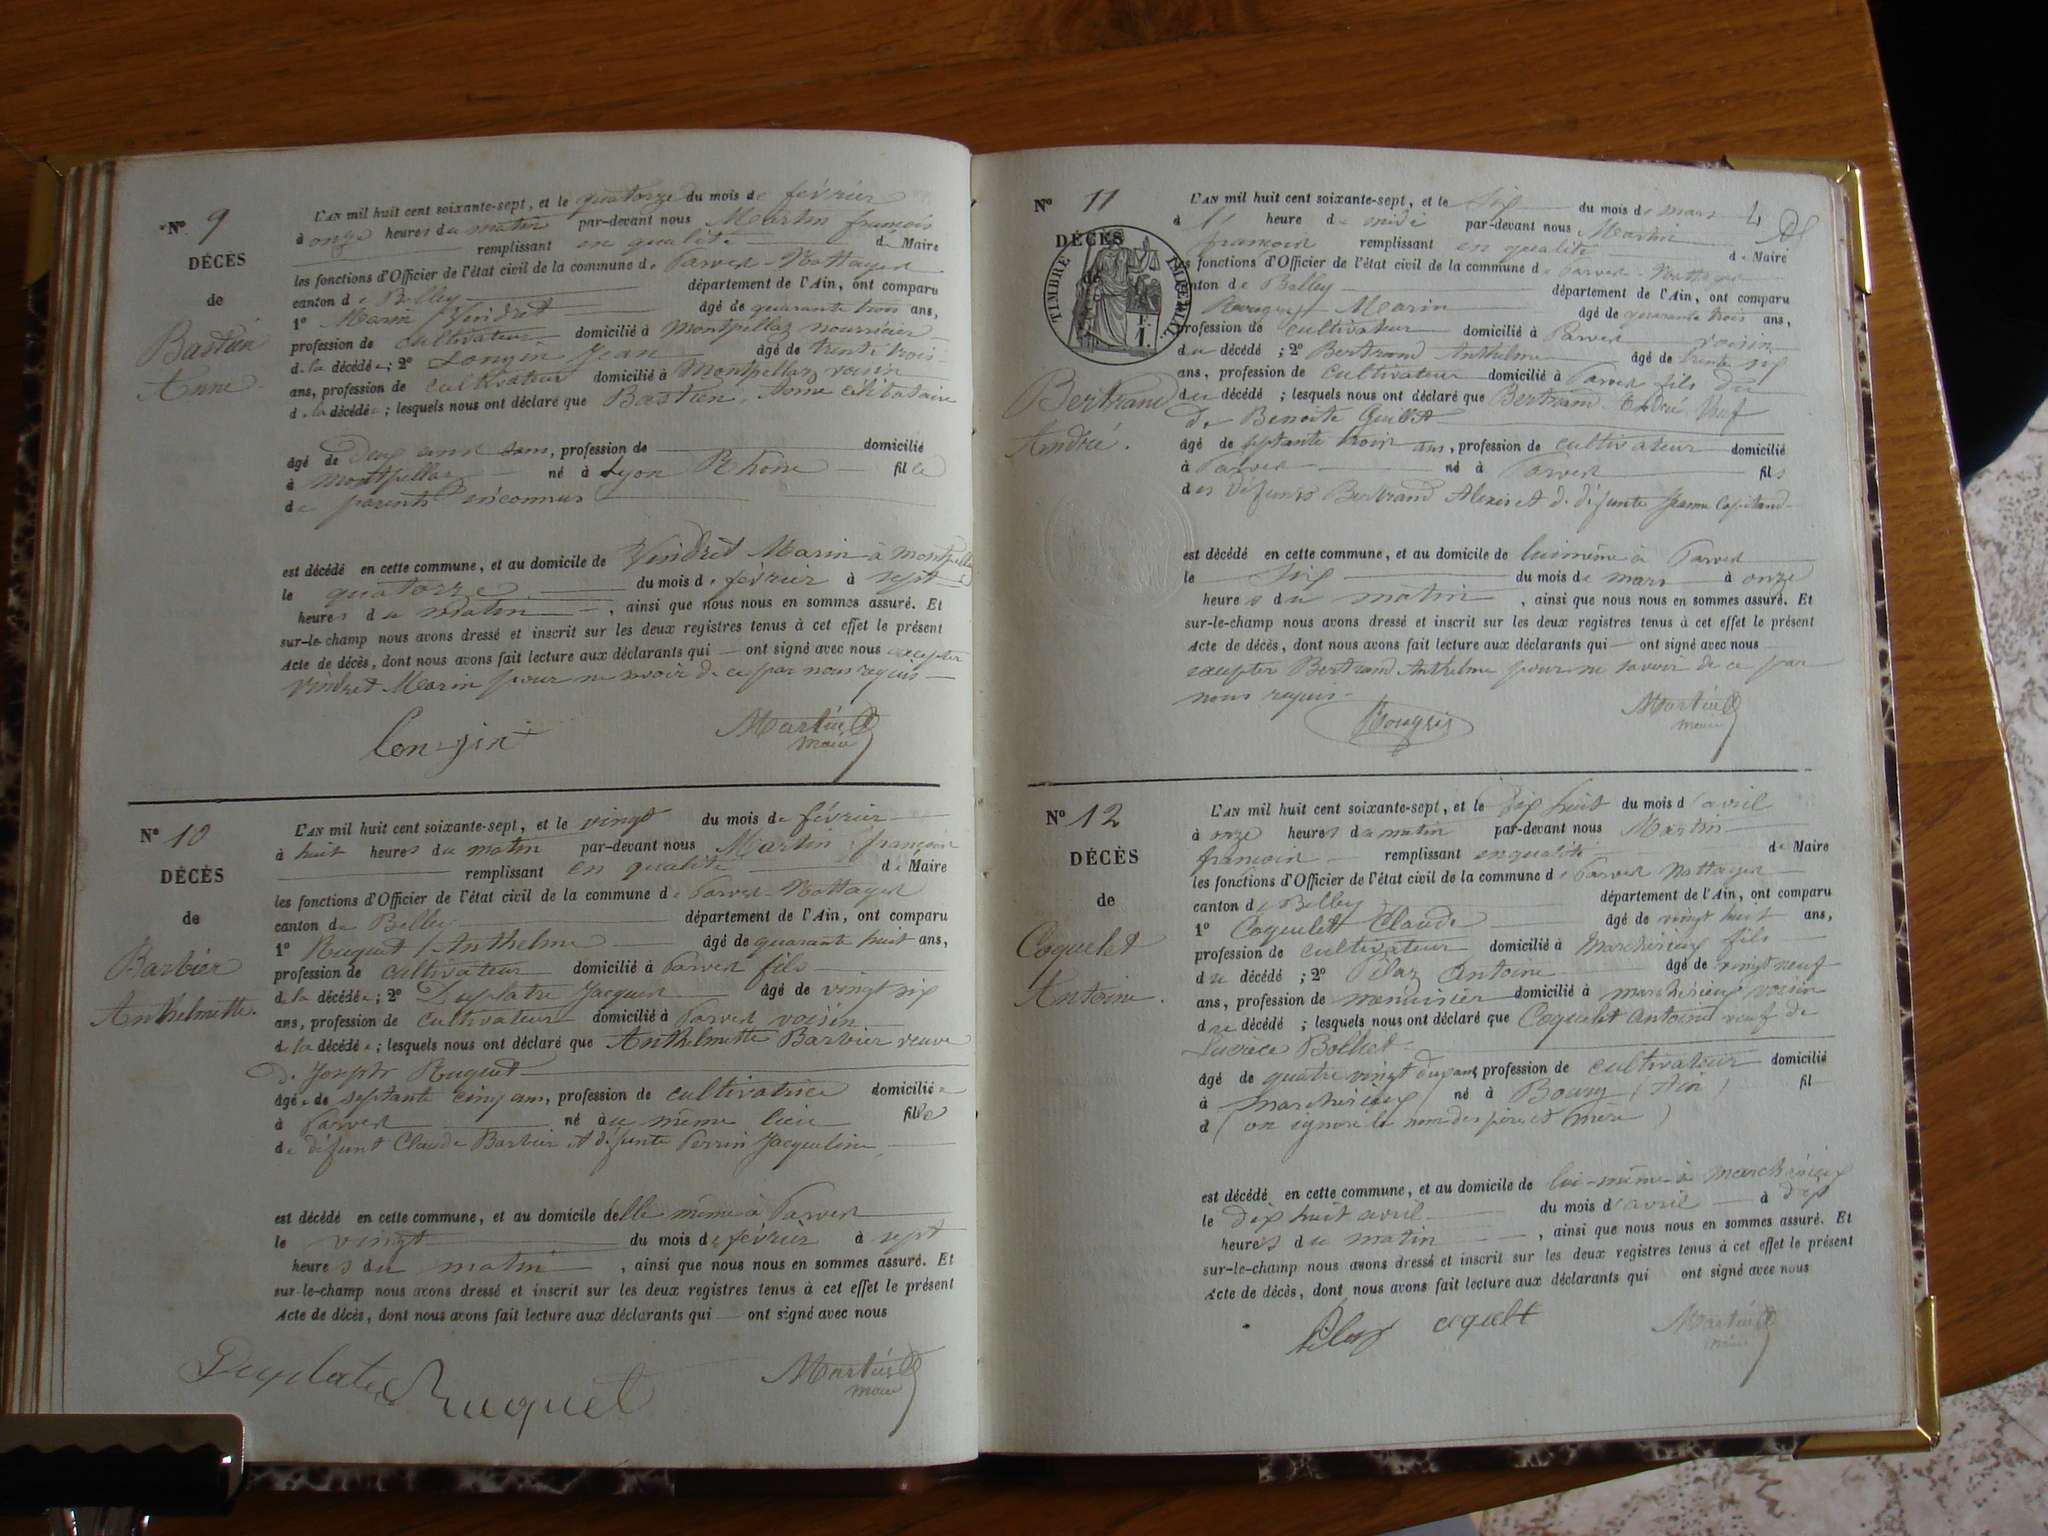 N° 9
DÉCÈS
de
Bastien
Anne
L'AN mil huit cent soixante-sept, et le quatorze du mois de février
à onze heures du matin par-devant nous Martin françois
remplissant en qualité de Maire
les fonctions d'Officier de l'état civil de la commune de Parves-Nattages
canton de Belley département de l'Ain, ont comparu
1° Marin Vindret âgé de quarante trois ans,
profession de cultivateur domicilié à Montpellaz nourricier
de la décédée; 2° Longin Jean âgé de trente trois
ans, profession de cultivateur domicilié à Montpellaz voisin
de la décédée; lesquels nous ont déclaré que Bastien, Anne célibataire
âgé de Deux ans, profession de domicilié
à Montpellaz né à Lyon Rhône fille
de parents inconnus
est décédé en cette commune, et au domicile de Vindret Marin à Montpellaz
le quatorze du mois de février à sept
heures du matin, ainsi que nous nous en sommes assuré. Et
sur-le-champ nous avons dressé et inscrit sur les deux registres tenus à cet effet le présent
Acte de décès, dont nous avons fait lecture aux déclarants qui ont signé avec nous excepter
Vindret Marin pour ne savoir de ce par nous requis
Longin Martin
maire
N° 10
DÉCÈS
de
Barbier
Anthelmette.
L'AN mil huit cent soixante-sept, et le vingt du mois de février
à huit heures du matin par-devant nous Martin françois
remplissant en qualité de Maire
les fonctions d'Officier de l'état civil de la commune de Parves-Nattages
canton de Belley département de l'Ain, ont comparu
1° Ruguet Anthelme âgé de quarante huit ans,
profession de cultivateur domicilié à Parves fils
de la décédée; 2° Duplatre Jacques âgé de vingt six
ans, profession de cultivateur domicilié à Parves voisin
de la décédée; lesquels nous ont déclaré que Anthelmette Barbier veuve
de Joseph Ruguet
âgée de septante cinq ans, profession de cultivatrice domiciliée
à Parves né au même lieu fille
de défunt Claude Barbier et défunte Perrin Jacqueline
est décédé en cette commune, et au domicile d'elle même à Parves
le vingt du mois de février à sept
heures du matin, ainsi que nous nous en sommes assuré. Et
sur-le-champ nous avons dressé et inscrit sur les deux registres tenus à cet effet le présent
Acte de décès, dont nous avons fait lecture aux déclarants qui ont signé avec nous
Ruguet Martin
maire
N° 11
DÉCÈS
de
TIMBRE IMPÉRIAL
F.
1.
Bertrand
André.
L'AN mil huit cent soixante-sept, et le Six du mois de mars 4
à heure de midi par-devant nous Martin
françois remplissant en qualité de Maire
les fonctions d'Officier de l'état civil de la commune de Parves-Nattages
canton de Belley département de l'Ain, ont comparu
Marin âgé de quarante trois ans,
profession de cultivateur domicilié à Parves voisin
du décédé; 2° Bertrand Anthelme âgé de trente six
ans, profession de cultivateur domicilié à Parves fils du
du décédé; lesquels nous ont déclaré que Bertrand André Veuf
de Benoite Guillot
âgé de septante trois ans, profession de cultivateur domicilié
à Parves né à Parves fils
des défunts Bertrand Alexis et de défunte Jeanne
est décédé en cette commune, et au domicile de lui même à Parves
le Six du mois de mars à onze
heures du matin, ainsi que nous nous en sommes assuré. Et
sur-le-champ nous avons dressé et inscrit sur les deux registres tenus à cet effet le présent
Acte de décès, dont nous avons fait lecture aux déclarants qui ont signé avec nous
excepter Bertrand Anthelme pour ne savoir de ce par
nous requis
Martin
maire
N° 12
DÉCÈS
de
Coquelet
Antoine.
L'AN mil huit cent soixante-sept, et le Dix huit du mois d'avril
à onze heures du matin par-devant nous Martin
françois remplissant en qualité de Maire
les fonctions d'Officier de l'état civil de la commune de Parves Nattages
canton de Belley département de l'Ain, ont comparu
1° Coquelet Claude âgé de vingt huit ans,
profession de cultivateur domicilié à Marchérieux fils
du décédé; 2° Pilaz Antoine âgé de vingt neuf
ans, profession de menuisier domicilié à marchérieux voisin
du décédé; lesquels nous ont déclaré que Coquelet Antoine veuf de
Lucrèce Bolliet
âgé de quatre vingt deux ans, profession de cultivateur domicilié
à marchérieux né à Bourg (Ain) fil
d (on ignore le nom des père et mère)
est décédé en cette commune, et au domicile de lui-même à marchérieux
le dix huit avril du mois d'avril à Dix
heures du matin, ainsi que nous nous en sommes assuré. Et
sur-le-champ nous avons dressé et inscrit sur les deux registres tenus à cet effet le présent
Acte de décès, dont nous avons fait lecture aux déclarants qui ont signé avec nous
Pilaz Martin
maire